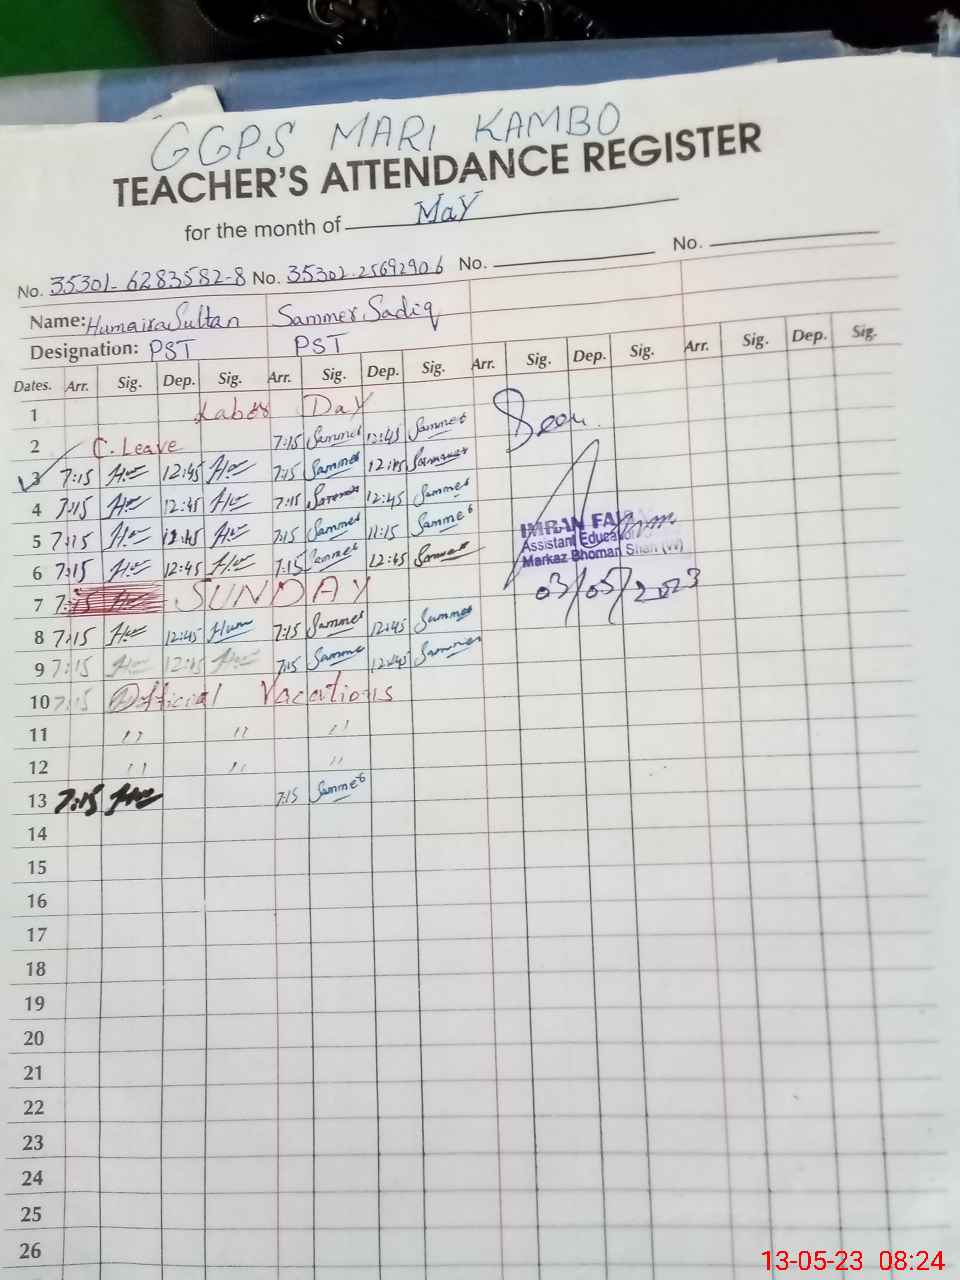 GGPS MARI KAMBO
TEACHER'S ATTENDANCE REGISTER
for the month of May
No. 35301-6283582-8 No. 35302-2569290-6 No. No.
Name: Humaira Sultan Sammer Sadiq
Designation: PST PST
Dates. Arr. Sig. Dep. Sig. Arr. Sig. Dep. Sig. Arr. Sig. Dep. Sig. Arr. Sig. Dep. Sig.
1 Labor Day
2 C. Leave 7:15 Sammer 12:45 Sammer Seen
3 7:15 12:45 7:15 Sammer 12:45 Sammer
4 7:15 12:45 7:15 Sammer 12:45 Sammer
5 7:15 12:45 7:15 Sammer 11:15 Sammer
IMRAN
Assistant Education
Markaz Bhoman Shah (W)
6 7:15 12:45 7:15 Sammer 12:45 Sammer
03/05/2023
7 7:15 SUNDAY
8 7:15 12:45 Hum 7:15 Sammer 12:45 Sammer
9 7:15 12:45 7:15 Samme 12:45 Sammer
10 7:15 Official Vacations
11 " " "
12 " " "
13 7:15 7:15 Sammer
14
15
16
17
18
19
20
21
22
23
24
25
26
13-05-23 08:24